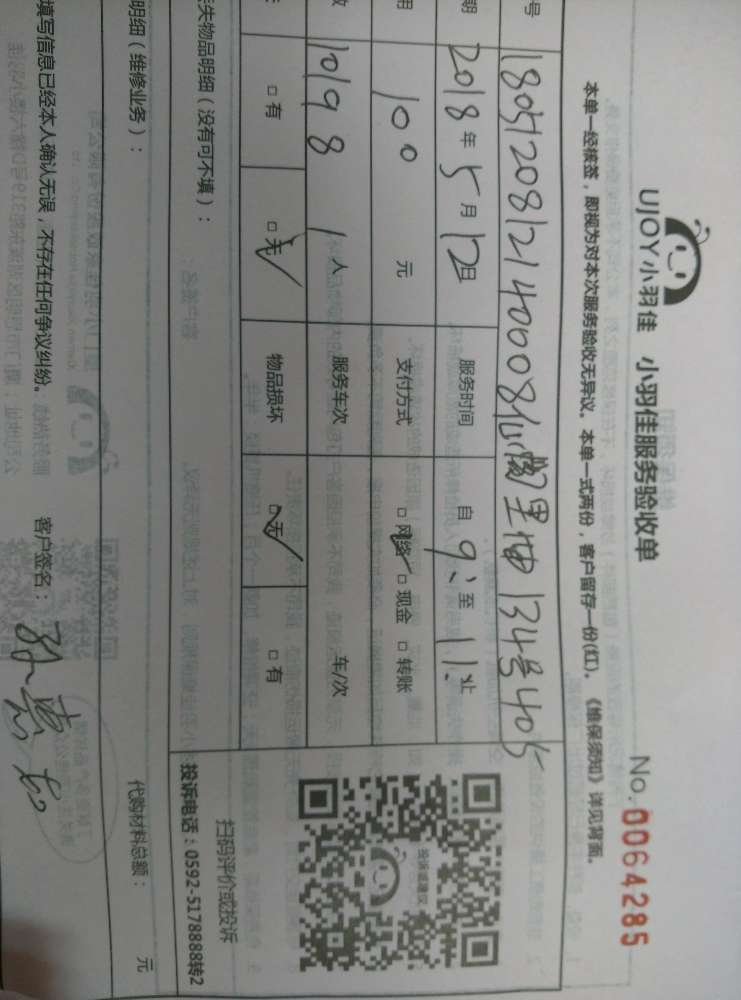 UJOY小羽佳 小羽佳服务验收单 No.0064285
本单一经核签，即视为对本次服务验收无异议。本单一式两份，客户留存一份(红)。《维保须知》详见背面。
号 1805120812140008仙阁里 134号405
期 2018年5月12日 服务时间 自9:至11:
用 100 元 支付方式 □网络✓ □现金 □转账
数 10198 1人 服务车次 车/次
□有 □无✓ 物品损坏 □无✓ □有
失物品明细（没有可不填）：
扫码评价或投诉
投诉电话：0592-5178888转2
投诉或建议
明细（维修业务）： 代购材料总额： 元
填写信息已经本人确认无误，不存在任何争议纠纷。 客户签名：